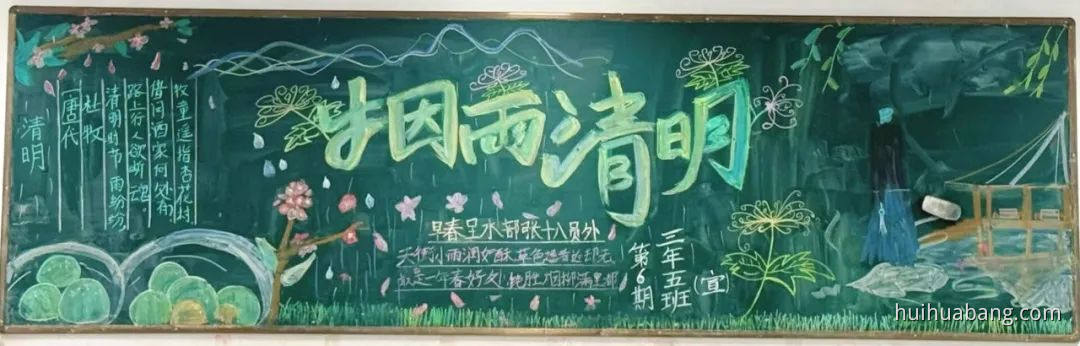 烟雨清明
清明
(唐代)
杜牧
清明时节雨纷纷
路上行人欲断魂。
借问酒家何处有
牧童遥指杏花村
早春呈水部张十八员外
天街小雨润如酥,草色遥看近却无,
最是一年春好处,绝胜烟柳满皇都
三年五班(宣)
第6期
huihuabang.com